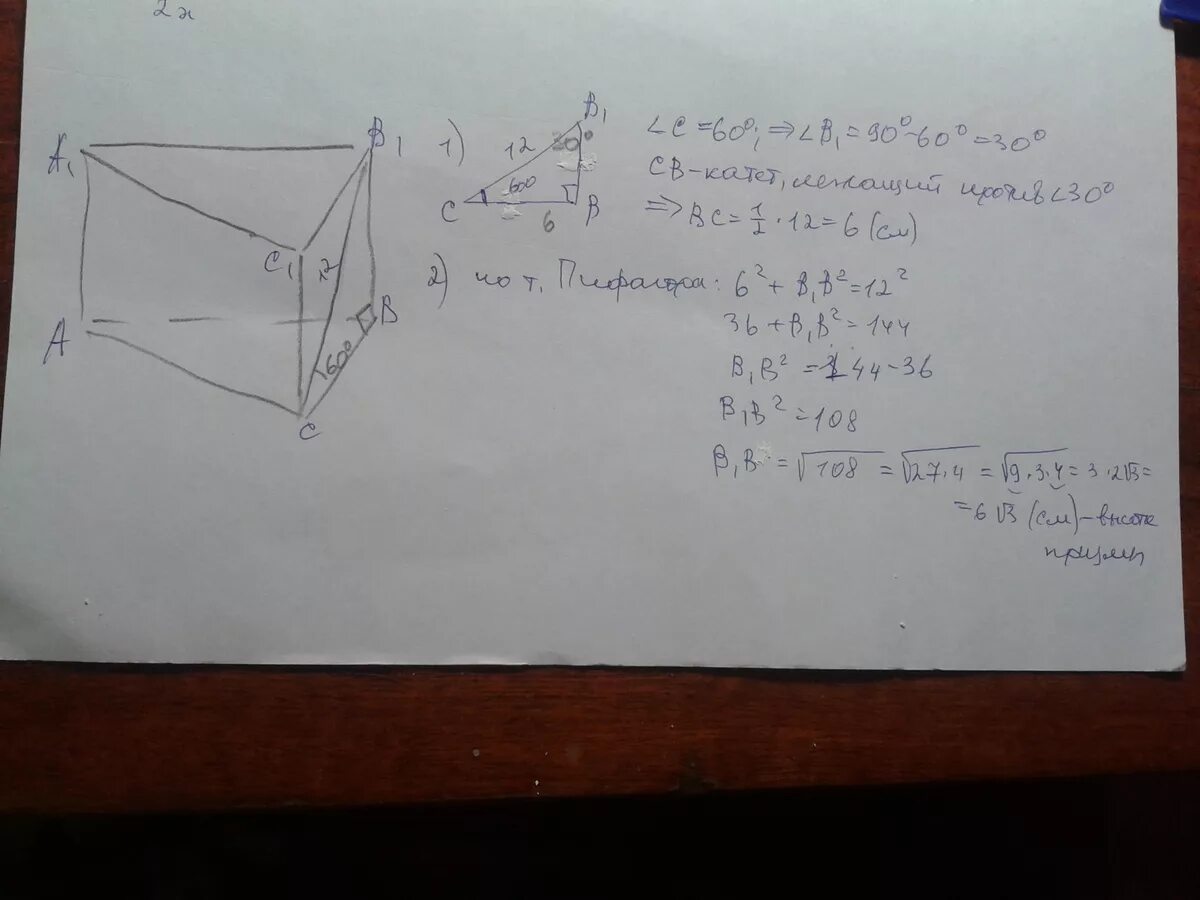 2х
A₁
B₁
C₁
12
A
B
60°
C
1)
B₁
12
30°
60°
C
6
B
∠C = 60°; ⇒ ∠B₁ = 90° - 60° = 30°
CB - катет, лежащий против ∠30°
⇒ BC = 1/2 · 12 = 6 (см)
2) по т. Пифагора: 6² + B₁B² = 12²
36 + B₁B² = 144
B₁B² = 144 - 36
B₁B² = 108
B₁B = √108 = √27·4 = √9·3·4 = 3·2√3 =
= 6√3 (см) - высота
призмы